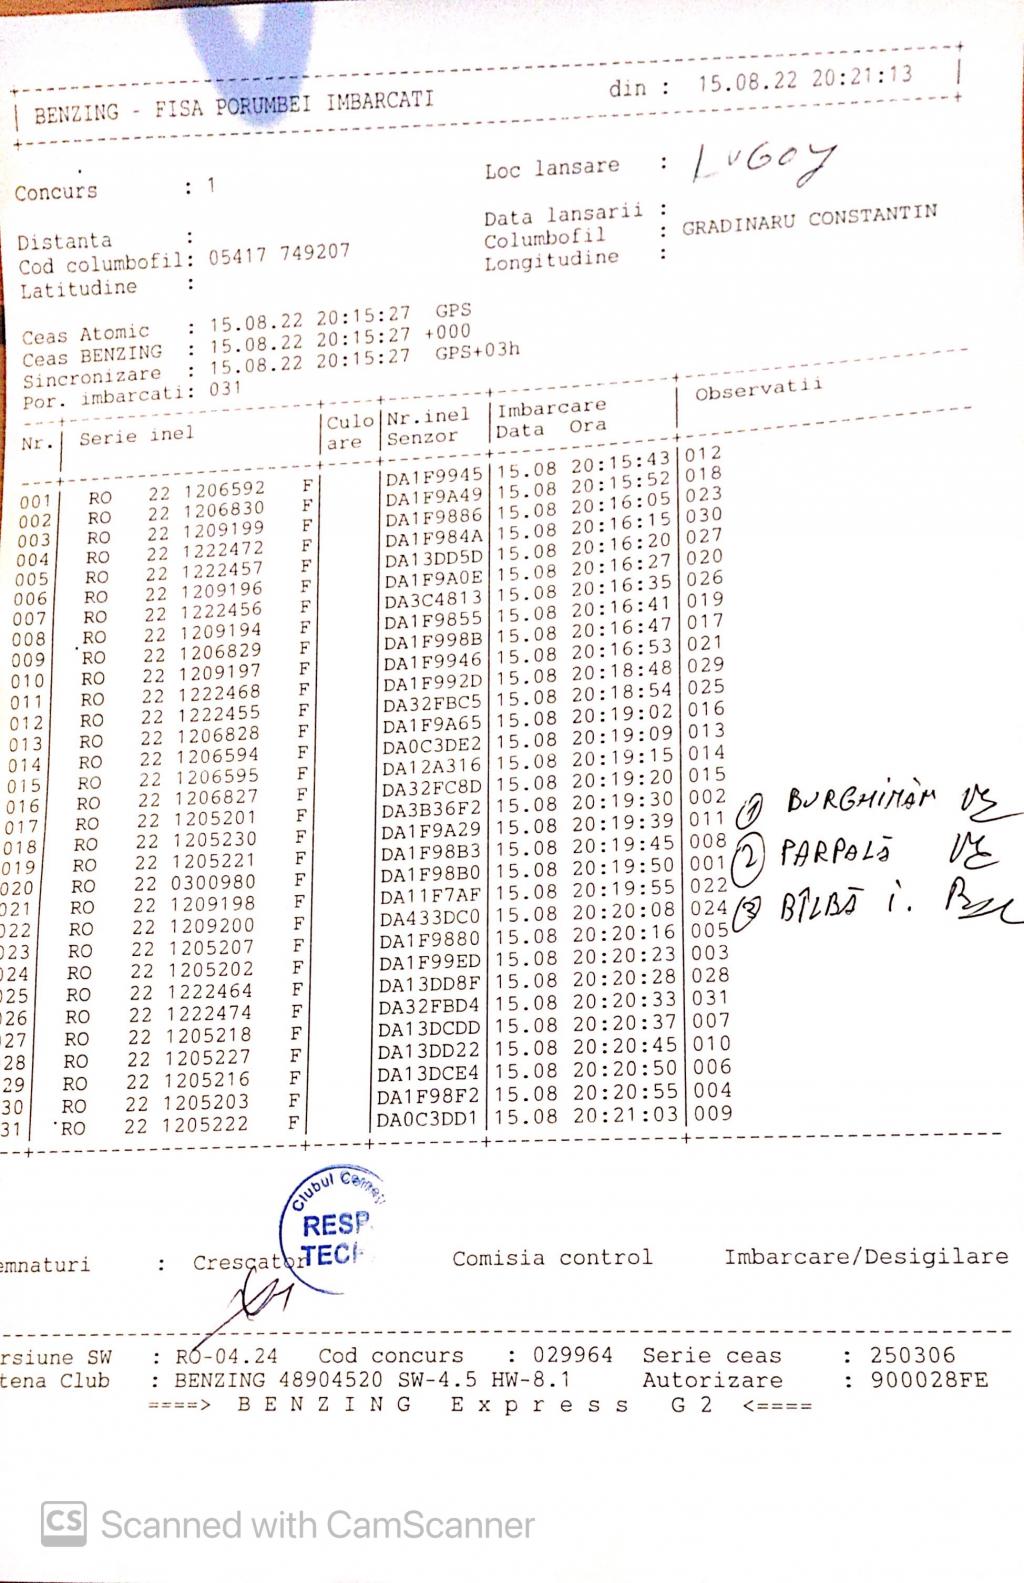 BENZING - FISA PORUMBEI IMBARCATI din : 15.08.22 20:21:13
Concurs : 1 Loc lansare : LUGOJ
Distanta : Data lansarii :
Cod columbofil: 05417 749207 Columbofil : GRADINARU CONSTANTIN
Latitudine : Longitudine :
Ceas Atomic : 15.08.22 20:15:27 GPS
Ceas BENZING : 15.08.22 20:15:27 +000
Sincronizare : 15.08.22 20:15:27 GPS+03h
Por. imbarcati: 031
Nr. Serie inel Culo Nr.inel Imbarcare Observatii
are Senzor Data Ora
001 RO 22 1206592 F DA1F9945 15.08 20:15:43 012
002 RO 22 1206830 F DA1F9A49 15.08 20:15:52 018
003 RO 22 1209199 F DA1F9886 15.08 20:16:05 023
004 RO 22 1222472 F DA1F984A 15.08 20:16:15 030
005 RO 22 1222457 F DA13DD5D 15.08 20:16:20 027
006 RO 22 1209196 F DA1F9A0E 15.08 20:16:27 020
007 RO 22 1222456 F DA3C4813 15.08 20:16:35 026
008 RO 22 1209194 F DA1F9855 15.08 20:16:41 019
009 RO 22 1206829 F DA1F998B 15.08 20:16:47 017
010 RO 22 1209197 F DA1F9946 15.08 20:16:53 021
011 RO 22 1222468 F DA1F992D 15.08 20:18:48 029
012 RO 22 1222455 F DA32FBC5 15.08 20:18:54 025
013 RO 22 1206828 F DA1F9A65 15.08 20:19:02 016
014 RO 22 1206594 F DA0C3DE2 15.08 20:19:09 013
015 RO 22 1206595 F DA12A316 15.08 20:19:15 014
016 RO 22 1206827 F DA32FC8D 15.08 20:19:20 015
017 RO 22 1205201 F DA3B36F2 15.08 20:19:30 002 1 BURGHIMAM
018 RO 22 1205230 F DA1F9A29 15.08 20:19:39 011
019 RO 22 1205221 F DA1F98B3 15.08 20:19:45 008 2 PARPALĂ
020 RO 22 0300980 F DA1F98B0 15.08 20:19:50 001
021 RO 22 1209198 F DA11F7AF 15.08 20:19:55 022
022 RO 22 1209200 F DA433DC0 15.08 20:20:08 024 3 BÎLBĂ I.
023 RO 22 1205207 F DA1F9880 15.08 20:20:16 005
024 RO 22 1205202 F DA1F99ED 15.08 20:20:23 003
025 RO 22 1222464 F DA13DD8F 15.08 20:20:28 028
026 RO 22 1222474 F DA32FBD4 15.08 20:20:33 031
27 RO 22 1205218 F DA13DCDD 15.08 20:20:37 007
28 RO 22 1205227 F DA13DD22 15.08 20:20:45 010
29 RO 22 1205216 F DA13DCE4 15.08 20:20:50 006
30 RO 22 1205203 F DA1F98F2 15.08 20:20:55 004
31 RO 22 1205222 F DA0C3DD1 15.08 20:21:03 009
Clubul
RESP
TECH
emnaturi : Crescator Comisia control Imbarcare/Desigilare
rsiune SW : RO-04.24 Cod concurs : 029964 Serie ceas : 250306
tena Club : BENZING 48904520 SW-4.5 HW-8.1 Autorizare : 900028FE
====> B E N Z I N G E x p r e s s G 2 <====
CS Scanned with CamScanner